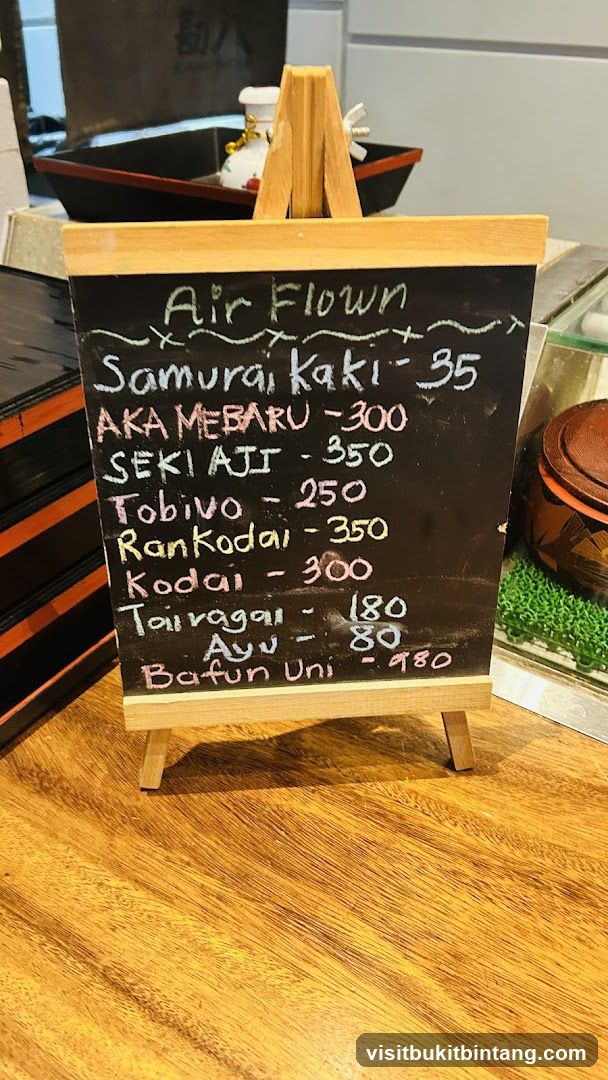 勘八
Air Flown
Samurai Kaki - 35
AKA MEBARU - 300
SEKI AJI - 350
Tobivo - 250
RanKodai - 350
Kodai - 300
Tairagai - 180
Ayu - 80
Bafun Uni - 980
visitbukitbintang.com